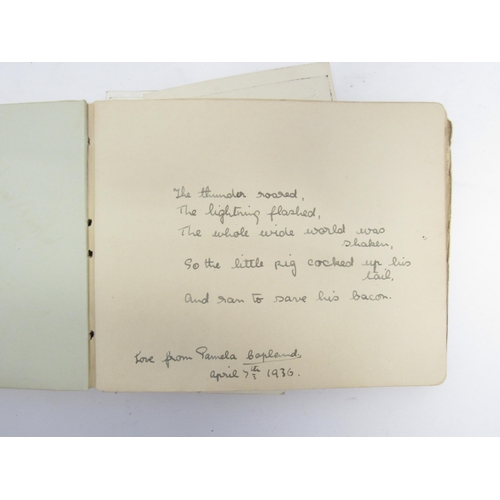 The thunder roared,
The lightning flashed,
The whole wide world was
shaken,
So the little pig cocked up his
tail,
And ran to save his bacon.
Love from Pamela Copland,
April 7th 1936.